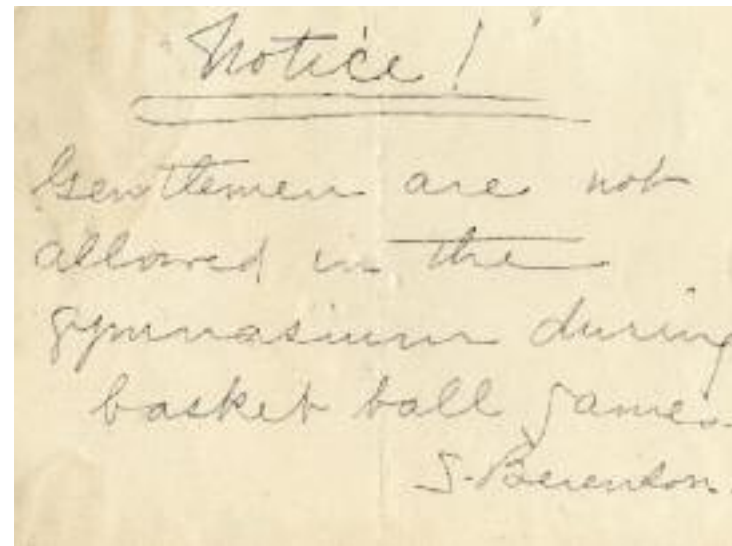 Notice!
Gentlemen are not
allowed in the
gymnasium during
basket ball games.
S. Berenson.